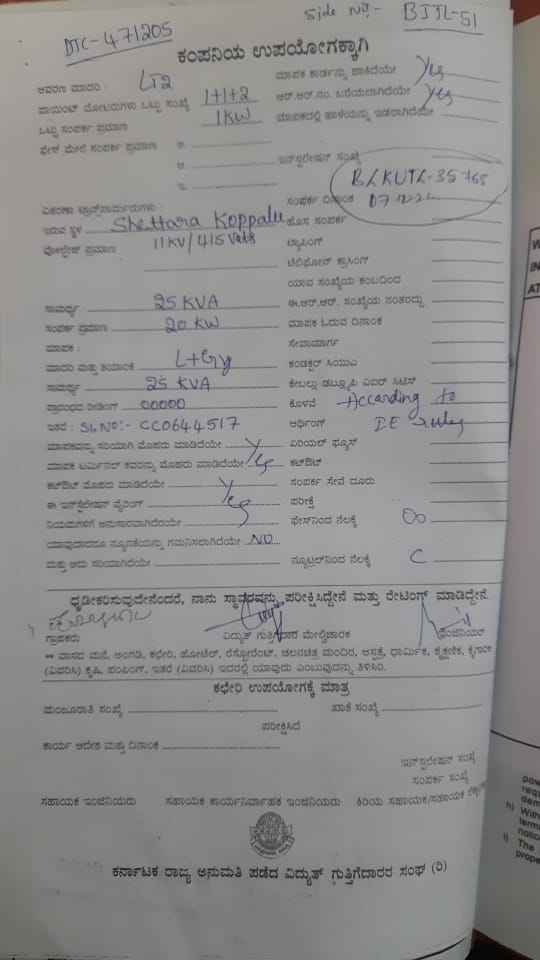 DTC-471205
Side No,- BJJL-51
ಕಂಪನಿಯ ಉಪಯೋಗಕ್ಕಾಗಿ
ಆವರಣ ಮಾದರಿ : LT2
ಮಾಪಕ ಕಾರ್ಡನ್ನು ಹಾಕಿದೆಯೇ Yes
ಪಾಯಿಂಟ್ ಮೋಟರುಗಳು ಒಟ್ಟು ಸಂಖ್ಯೆ 1+1+2
ಆರ್.ಆರ್.ನಂ. ಬರೆಯಲಾಗಿದೆಯೇ Yes
ಒಟ್ಟು ಸಂಪರ್ಕ ಪ್ರಮಾಣ 1KW
ಮಾಪಕದಲ್ಲಿ ಹಾಳೆಯನ್ನು ಇಡಲಾಗಿದೆಯೇ
ಫೇಸ್ ಮೇಲೆ ಸಂಪರ್ಕ ಪ್ರಮಾಣ ಆ.
ಆ. ಇನ್‌ಸ್ಟಲೇಷನ್ ಸಂಖ್ಯೆ
BLKUTL-35765
ಇ. ಸಂಪರ್ಕ ದಿನಾಂಕ
ವಿತರಣಾ ಟ್ರಾನ್ಸ್‌ಫಾರ್ಮರುಗಳು :
ಇರುವ ಸ್ಥಳ Shettara Koppalu ಹೊಸ ಸಂಪರ್ಕ
ವೋಲ್ಟೇಜ್ ಪ್ರಮಾಣ 11KV/415 Volts ಟ್ಯಾಪಿಂಗ್
ಟೆಲಿಫೋನ್ ಕ್ರಾಸಿಂಗ್
ಯಾವ ಸಂಖ್ಯೆಯ ಕಂಬದಿಂದ
ಸಾಮರ್ಥ್ಯ 25 KVA ಈ.ಆರ್.ಆರ್. ಸಂಖ್ಯೆಯ ನಂತರದ್ದು
ಸಂಪರ್ಕ ಪ್ರಮಾಣ 20 KW ಮಾಪಕ ಓದುವ ದಿನಾಂಕ
ಮಾಪಕ : ಸೇವಾಮಾರ್ಗ
ಮಾದರಿ ಮತ್ತು ತಯಾರಿಕೆ L+Gy ಕಂಡಕ್ಟರ್ ಸಿಯುಎ
ಸಾಮರ್ಥ್ಯ 25 KVA
ಪ್ರಾರಂಭದ ರೀಡಿಂಗ್ 00000 ಕೊಳವೆ According to
ಇತರೆ : SL.No:- CC0644517 ಅರ್ಥಿಂಗ್ IE rules
ಮಾಪಕವನ್ನು ಸರಿಯಾಗಿ ಮೊಹರು ಮಾಡಿದೆಯೇ Yes ಏರಿಯಲ್ ಫ್ಯೂಸ್
ಮಾಪಕ ಟರ್ಮಿನಲ್ ಕವರನ್ನು ಮೊಹರು ಮಾಡಿದೆಯೇ ಕಟ್‌ಔಟ್
ಕಟ್‌ಔಟ್ ಮೊಹರು ಮಾಡಿದೆಯೇ Yes ಸಂಪರ್ಕ ಸೇವೆ ದೂರು
ಈ ಇನ್‌ಸ್ಟಲೇಷನ್ ವೈರಿಂಗ್ ಪರೀಕ್ಷೆ
ನಿಯಮಗಳಿಗೆ ಅನುಸಾರವಾಗಿದೆಯೇ ಫೇಸ್‌ನಿಂದ ನೆಲಕ್ಕೆ ∞
ಯಾವುದಾದರೂ ನ್ಯೂನತೆಯನ್ನು ಗಮನಿಸಲಾಗಿದೆಯೇ NO
ಮತ್ತು ಅದು ಸರಿಯಾಗಿದೆಯೇ ನ್ಯೂಟ್ರಲ್‌ನಿಂದ ನೆಲಕ್ಕೆ C
ಧೃಡೀಕರಿಸುವುದೇನೆಂದರೆ, ನಾನು ಸ್ಥಾವರವನ್ನು ಪರೀಕ್ಷಿಸಿದ್ದೇನೆ ಮತ್ತು ರೇಟಿಂಗ್ ಮಾಡಿದ್ದೇನೆ.
ಗ್ರಾಹಕರು ವಿದ್ಯುತ್ ಗುತ್ತಿಗೆದಾರ ಮೇಲ್ವಿಚಾರಕ ಇಂಜಿನಿಯರ್
** ವಾಸದ ಮನೆ, ಅಂಗಡಿ, ಕಛೇರಿ, ಹೋಟೆಲ್, ರೆಸ್ಟೋರೆಂಟ್, ಚಲನಚಿತ್ರ ಮಂದಿರ, ಆಸ್ಪತ್ರೆ, ಧಾರ್ಮಿಕ, ಶೈಕ್ಷಣಿಕ, ಕೈಗಾರಿಕೆ
(ವಿವರಿಸಿ) ಕೃಷಿ, ಪಂಪಿಂಗ್, ಇತರೆ (ವಿವರಿಸಿ) ಇದರಲ್ಲಿ ಯಾವುದು ಎಂಬುವುದನ್ನು ತಿಳಿಸಿರಿ.
ಕಛೇರಿ ಉಪಯೋಗಕ್ಕೆ ಮಾತ್ರ
ಮಂಜೂರಾತಿ ಸಂಖ್ಯೆ ಖಾತೆ ಸಂಖ್ಯೆ
ಪರೀಕ್ಷಿಸಿದೆ
ಕಾರ್ಯ ಆದೇಶ ಮತ್ತು ದಿನಾಂಕ
ಇನ್‌ಸ್ಟಲೇಷನ್ ಸಂಖ್ಯೆ
ಸಂಪರ್ಕ ಸಂಖ್ಯೆ
ಸಹಾಯಕ ಇಂಜಿನಿಯರು ಸಹಾಯಕ ಕಾರ್ಯನಿರ್ವಾಹಕ ಇಂಜಿನಿಯರು ಕಿರಿಯ ಸಹಾಯಕ/ಸಹಾಯಕ
ಕರ್ನಾಟಕ ರಾಜ್ಯ ಅನುಮತಿ ಪಡೆದ ವಿದ್ಯುತ್ ಗುತ್ತಿಗೆದಾರರ ಸಂಘ (ರಿ)